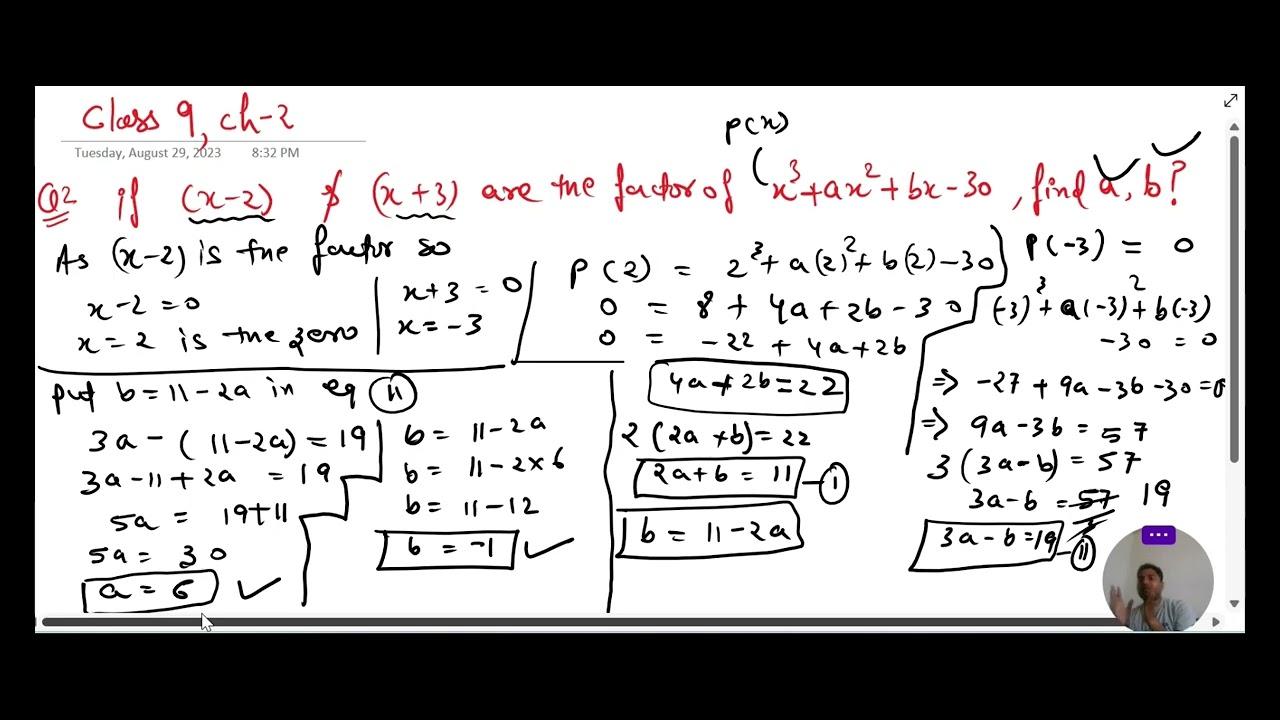 Class 9, ch-2
Tuesday, August 29, 2023 8:32 PM
P(x)
Q2 if (x-2) & (x+3) are the factor of x³+ax²+bx-30, find a, b?
As (x-2) is the factor so
x-2=0
x=2 is the zero
x+3=0
x=-3
P(2) = 2³+a(2)²+b(2)-30
0 = 8+4a+2b-30
0 = -22+4a+2b
4a+2b=22
2(2a+b)=22
2a+b=11 - I
b=11-2a
P(-3) = 0
(-3)³+a(-3)²+b(-3)
-30 = 0
⇒ -27+9a-3b-30=0
⇒ 9a-3b=57
3(3a-b)=57
3a-b=57 19
3
3a-b=19 - II
put b=11-2a in eq II
3a-(11-2a)=19
3a-11+2a=19
5a=19+11
5a=30
a=6
b=11-2a
b=11-2×6
b=11-12
b=-1